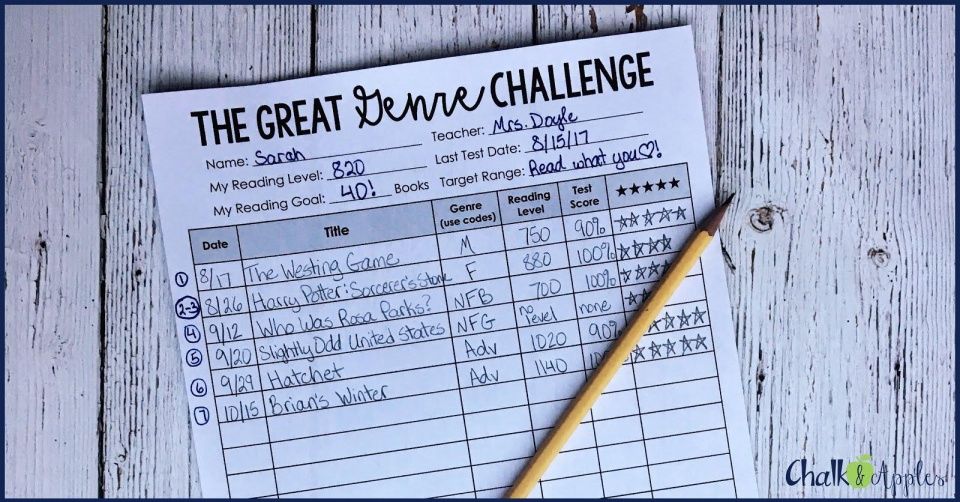 THE GREAT Genre CHALLENGE
Name: Sarah Teacher: Mrs. Doyle
My Reading Level: 820 Last Test Date: 8/15/17
My Reading Goal: 40! Books Target Range: Read what you♡!
Date Title Genre (use codes) Reading Level Test Score ★★★★★
1 8/17 The Westing Game M 750 90% ☆☆☆☆☆
2-3 8/26 Harry Potter: Sorcerer's Stone F 880 100% ☆☆☆☆
4 9/12 Who Was Rosa Parks? NFB 700 100%
5 9/20 Slightly Odd United States NFG no level none
6 9/29 Hatchet Adv 1020 90%
7 10/15 Brian's Winter Adv 1140
Chalk & Apples